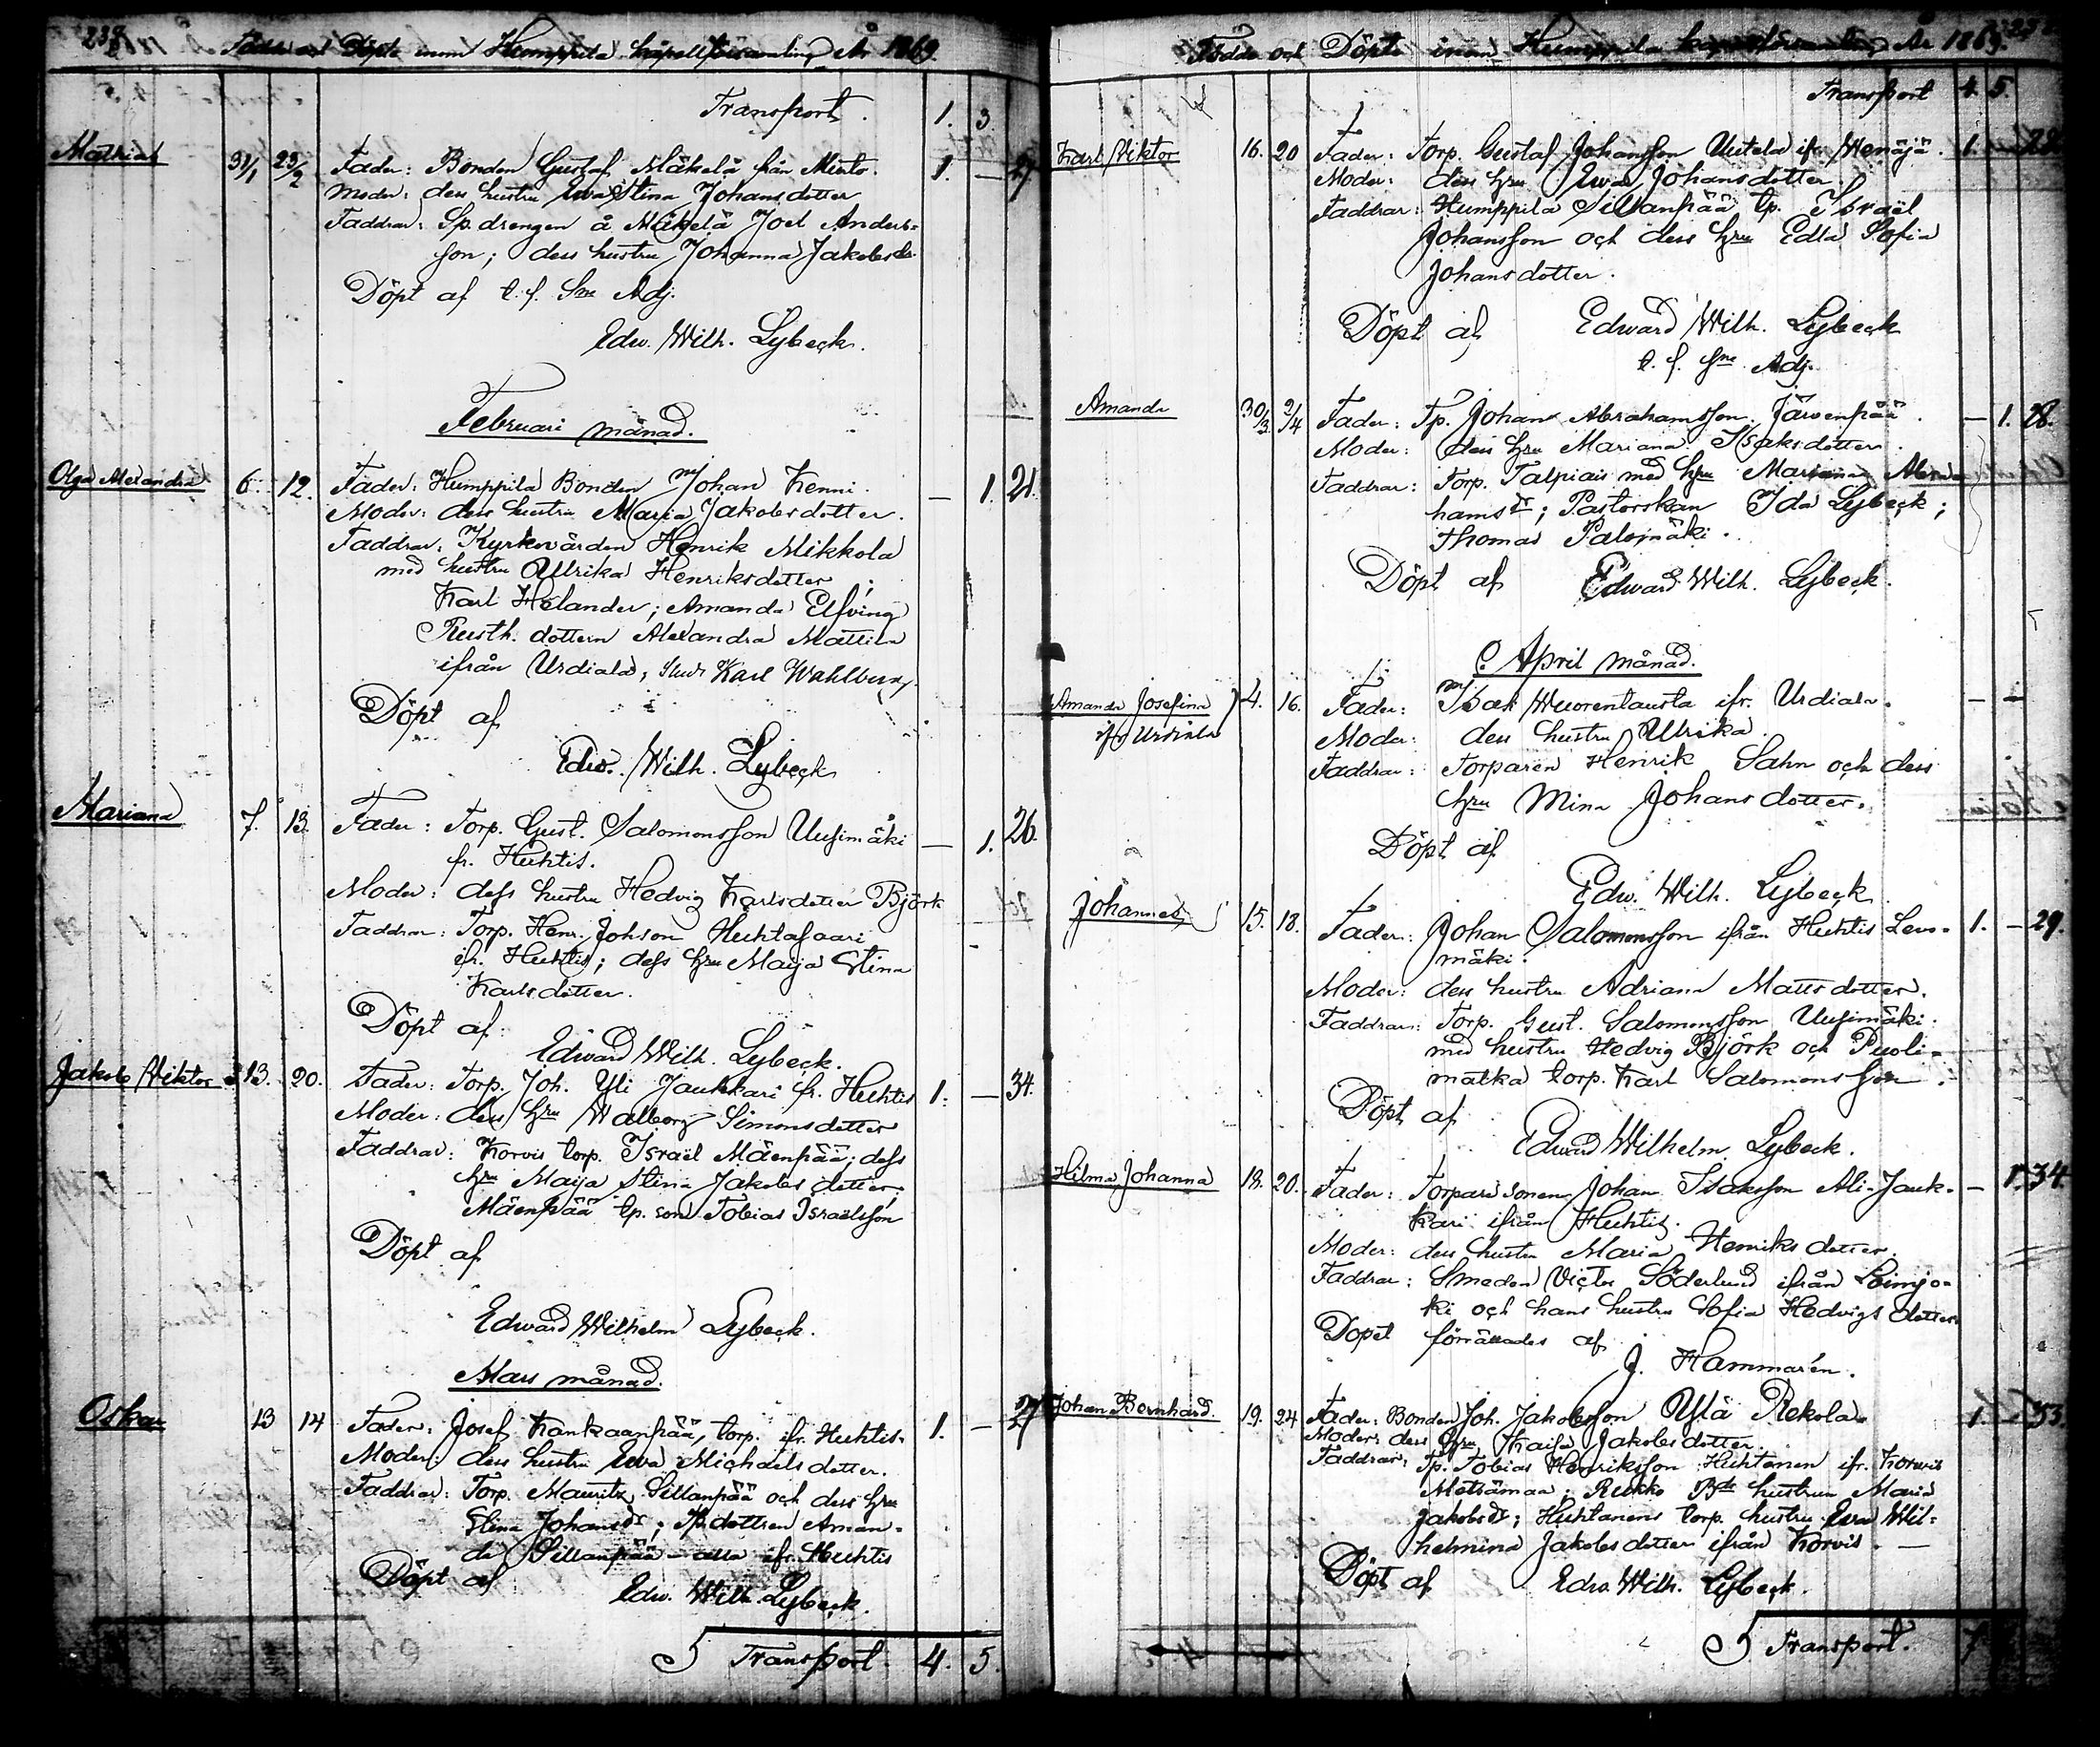 238
Födde och Döpte inom Humppila kapellförsamling År 1869.
Transport. 1. 3
Mathias 31/1 23/2 Fader: Bonden Gustaf Mäkelä från Misto. 1. —
Moder: dess hustru Ewa Stina Johansdotter
Faddrar: Sp. drengen å Mäkelä Joel Anders-
son; dess hustru Johanna Jakobsdr
Döpt af t. f. Sne Adj.
Edw. Wilh. Lybeck.
Februari månad.
Olga Alexandra 6. 12. Fader: Humppila Bonden Johan Kenni. — 1. 21.
Moder: dess hustru Maria Jakobsdotter.
Faddrar: Kyrkovärden Henrik Mikkola
med hustru Ulrika Henriksdotter;
Karl Helander; Amanda Elfving
Rusth. dottern Alexandra Mattila
ifrån Urdiala; Stud. Karl Wahlberg.
Döpt af
Edw. Wilh. Lybeck
Mariana 7. 13. Fader: Torp. Gust. Salomonsson Uusimäki — 1. 26.
fr. Huhtis.
Moder: dess hustru Hedvig Karlsdotter Björk
Faddrar: Torp. Henr. Johson Huhtasaari
ifr. Huhtis; dess hru Maija Stina
Karlsdotter.
Döpt af:
Edward Wilh. Lybeck.
Jakob Viktor 13. 20. Fader: Torp. Joh. Yli Jaukkari fr. Huhtis 1. — 34.
Moder: dess hru Walborg Simonsdotter
Faddrar: Korvis torp. Israel Mäenpää; dess
hru Maija Stina Jakobsdotter;
Mäenpää tp. son Tobias Israelsson
Döpt af
Edward Wilhelm Lybeck.
Mars månad.
Oskar 13 14 Fader: Josef Kankaanpää, torp. ifr. Huhtis. 1. — 27
Moder: dess hustru Ewa Michaelsdotter.
Faddrar: Torp. Mauritz Sillanpää och dess hru
Stina Johansdr; Tp. dottren Aman-
da Sillanpää — alla ifr. Huhtis
Döpt af
Edw. Wilh. Lybeck.
Transport. 4. 5.
Födde och Döpte inom Humppila kapellförsamling År 1869.
Transport 4. 5.
Karl Viktor 16. 20 Fader: Torp. Gustaf Johansson Uutela ifr. Wenäjä. 1. —
Moder: dess hru Ewa Johansdotter.
Faddrar: Humppila Sillanpää tp. Israël
Johansson och dess hru Edla Sofia
Johansdotter.
Döpt af Edward Wilh. Lybeck
t. f. Sne Adj.
Amanda 30/3 2/4 Fader: Tp. Johan Abrahamsson Järvenpää. — 1. 28.
Moder: dess hru Mariana Isaksdotter.
Faddrar: Torp. Talpiais med hru Mariana Abra-
hamsdr; Pastorskan Ida Lybeck;
Thomas Palomäki.
Döpt af Edward Wilh. Lybeck.
April månad.
Amanda Josefina 4. 16. Fader: Isak Wuorentausta ifr. Urdiala. — —
ifr Urdiala Moder: dess hustru Ulrika.
Faddrar: Torparen Henrik Sahn och dess
hru Mina Johansdotter.
Döpt af
Edw. Wilh. Lybeck.
Johannes 15. 18. Fader: Johan Salomonsson ifrån Huhtis Levo- 1. — 29.
mäki.
Moder: dess hustru Adriana Mattsdotter.
Faddrar: Torp. Gust. Salomonsson Uusimäki
med hustru Hedvig Björk och Puoli-
matka torp. Karl Salomonsson.
Döpt af
Edward Wilhelm Lybeck.
Hilma Johanna 18. 20. Fader: Torpare sonen Johan Isaksson Ali-Jauk- — 1. 34
kari ifrån Huhtis.
Moder: dess hustru Maria Henriksdotter.
Faddrar: Smeden Victor Söderlund ifrån Loimjo-
ki och hans hustru Sofia Hedvigsdotter
Dopet förrättades af
J. Hammarén.
Johan Bernhard. 19. 24 Fader: Bonden Joh. Jakobsson Ylä Rekola. 1. — 33.
Moder: dess hru Kaisa Jakobsdotter.
Faddrar: Tp. Tobias Henriksson Huhtanen ifr. Korvis
Metsämaa; Rukko Bde hustrun Maria
Jakobsdr; Huhtanens torp. hustru Ewa Wil-
helmina Jakobsdotter ifrån Korvis. —
Döpt af Edw. Wilh. Lybeck.
Transport. 7